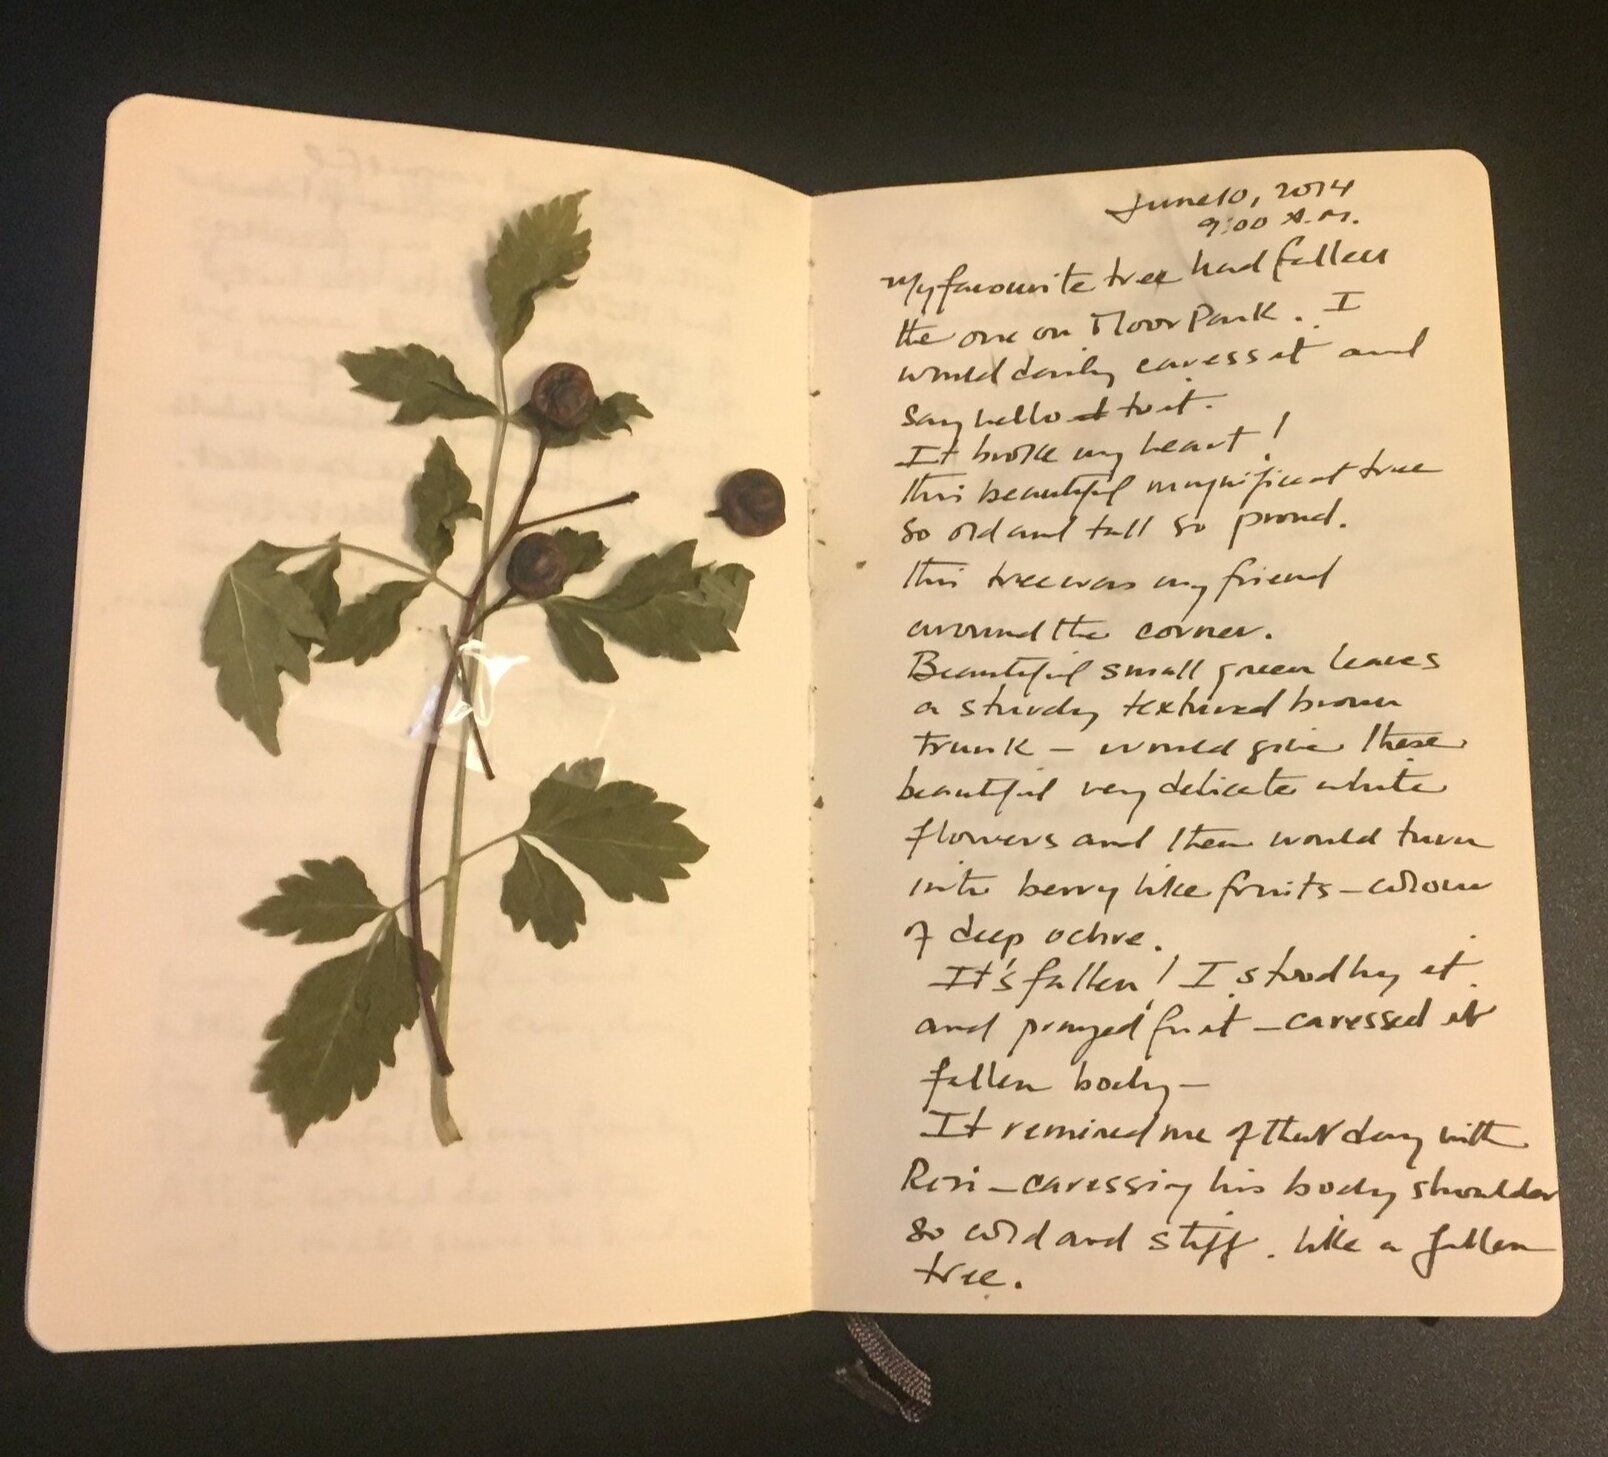 June 10, 2014
9:00 A.M.
My favourite tree had fallen
the one on Moor Park. I
would daily caress it and
say hello to it.
It broke my heart!
This beautiful magnificent tree
so old and tall so proud.
This tree was my friend
around the corner.
Beautiful small green leaves
a sturdy textured brown
trunk – would give these
beautiful very delicate white
flowers and then would turn
into berry like fruits – colour
of deep ochre.
It's fallen! I stood by it
and prayed for it – caressed it
fallen body –
It remined me of that day with
– caressing his body shoulder
so cold and stiff. like a fallen
tree.